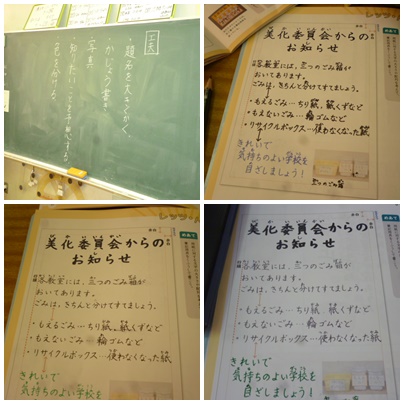 工夫
・題名を大きくかく。
・かじょう書き
・写真
・知りたいことを中心に
・色を分ける。
美化委員会からの
お知らせ
各教室には、三つのごみ箱が
おいてあります。
ごみは、きちんと分けてすてましょう。
・もえるごみ…ちり紙、紙くずなど
・もえないごみ…輪ゴムなど
・リサイクルボックス…使わなくなった紙
きれいで
気持ちのよい学校を
目ざしましょう!
三つのごみ箱
美化委員会からの
お知らせ
各教室には、三つのごみ箱が
おいてあります。
ごみは、きちんと分けてすてましょう。
・もえるごみ…ちり紙、紙くずなど
・もえないごみ…輪ゴムなど
・リサイクルボックス…使わなくなった紙
きれいで
気持ちのよい学校を
目ざしましょう!
美化委員会からの
お知らせ
各教室には、三つのごみ箱が
おいてあります。
ごみは、きちんと分けてすてましょう。
・もえるごみ…ちり紙、紙くずなど
・もえないごみ…輪ゴムなど
・リサイクルボックス…使わなくなった紙
きれいで
気持ちのよい学校を
目ざしましょう!